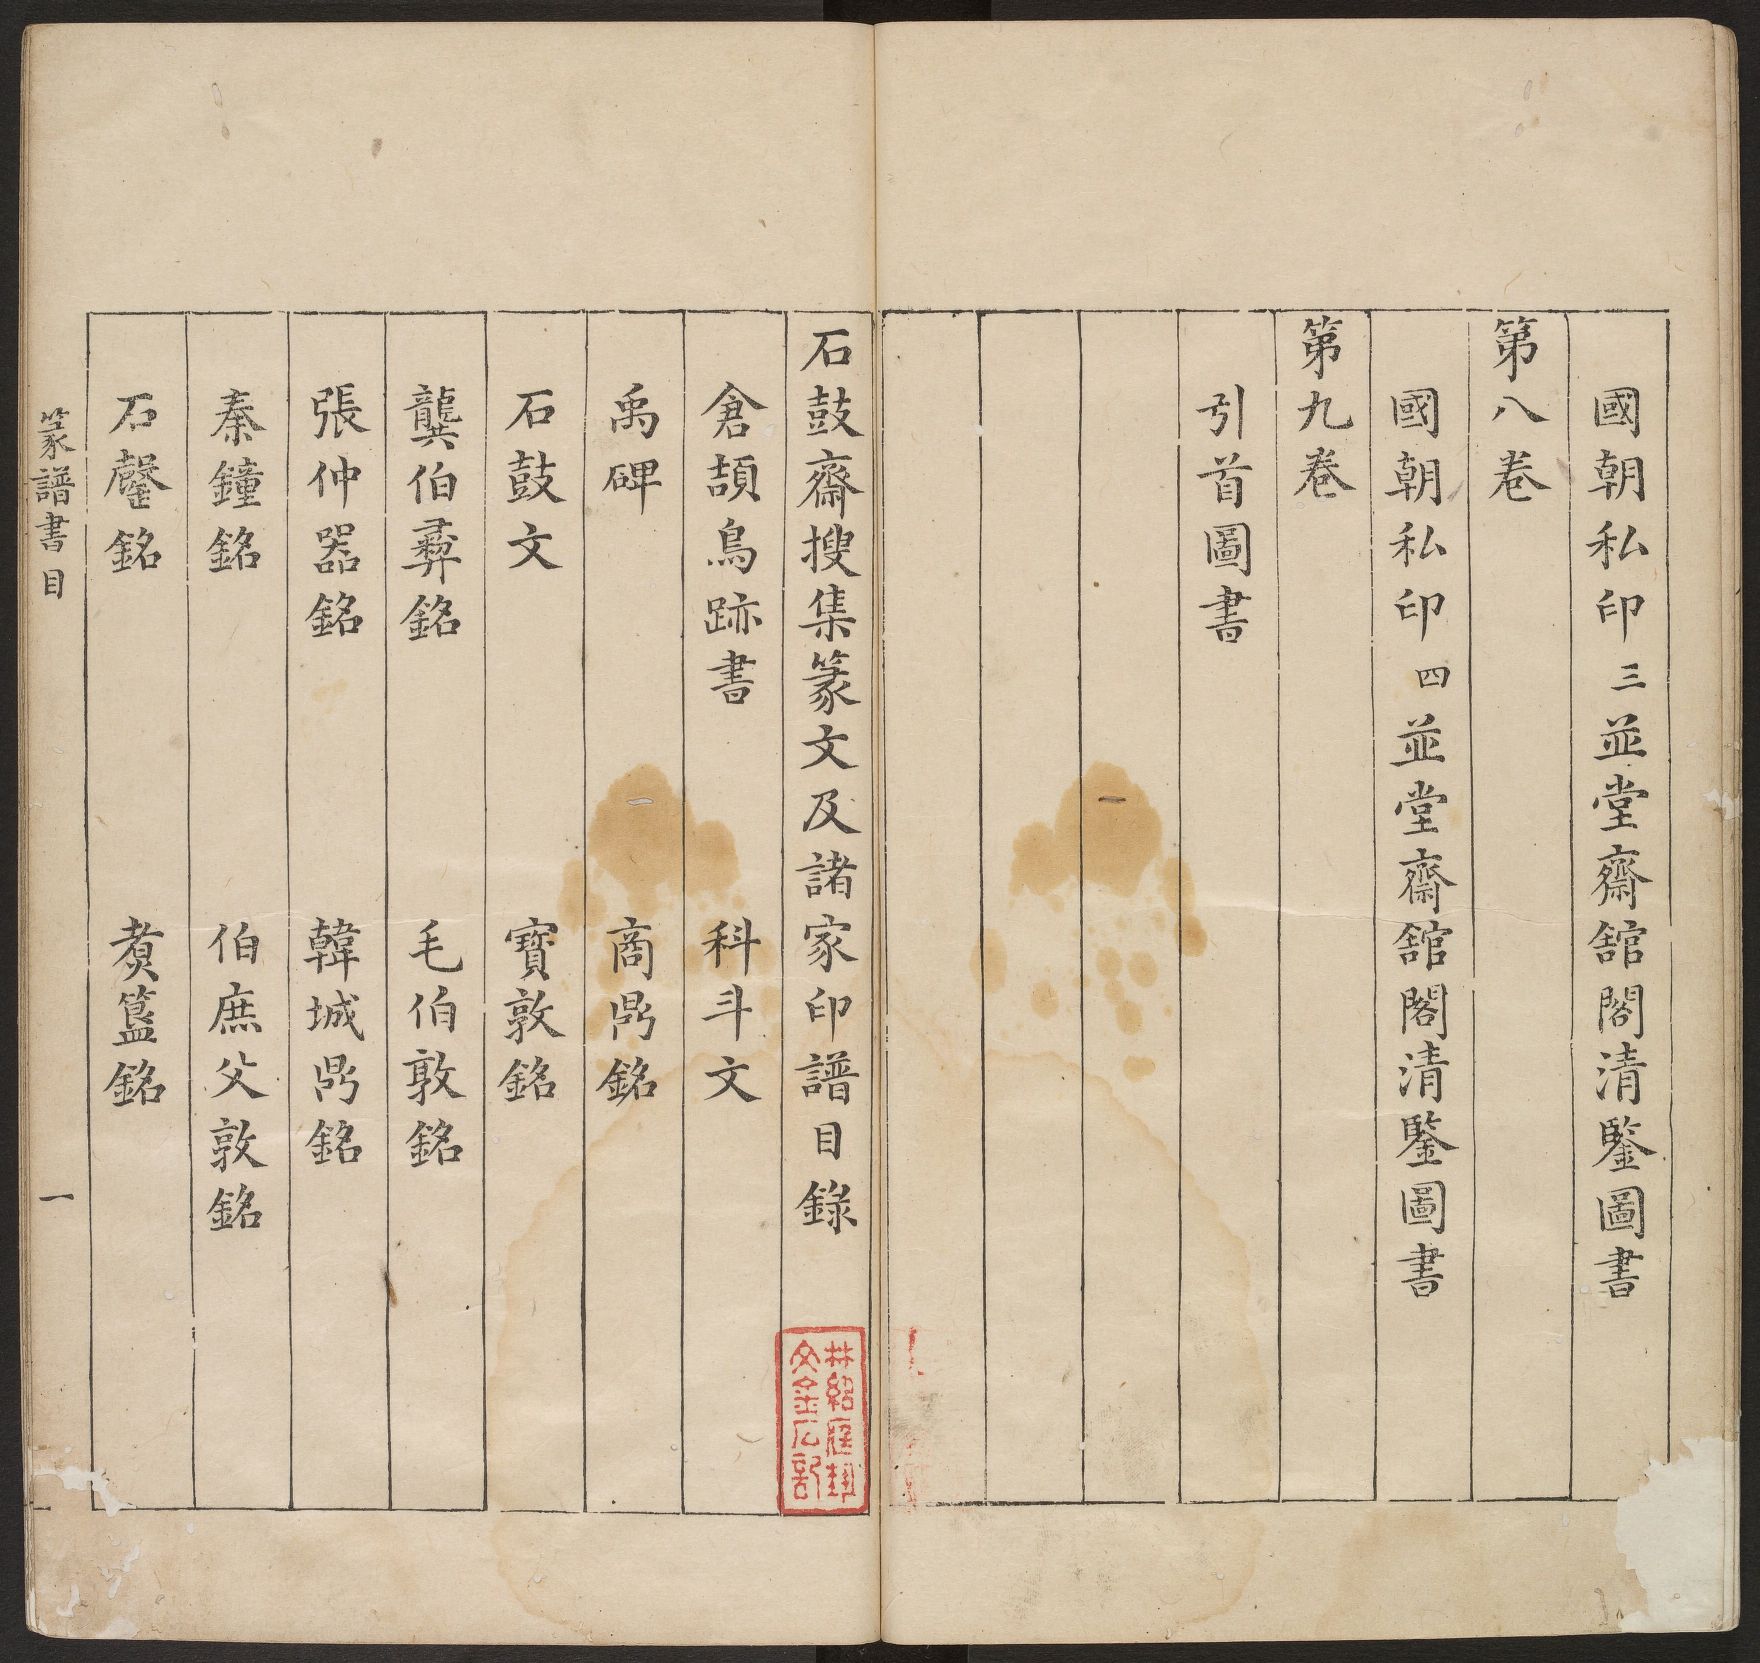 國朝私印 三 並堂齋舘閣清鑒圖書
第八卷
國朝私印 四 並堂齋舘閣清鑒圖書
第九卷
引首圖書
石鼓齋搜集篆文及諸家印譜目錄
倉頡鳥跡書 科斗文
禹碑 商鼎銘
石鼓文 寶敦銘
龔伯彞銘 毛伯敦銘
張仲器銘 韓城鼎銘
秦鐘銘 伯庶父敦銘
石磬銘 㷟簋銘
篆譜書目 一